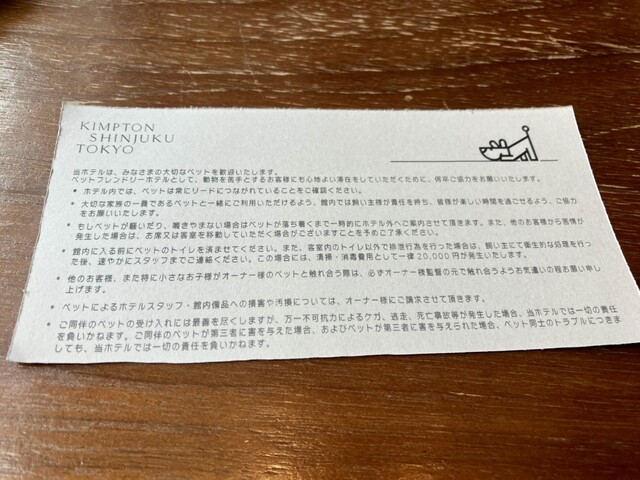 KIMPTON
SHINJUKU
TOKYO
当ホテルは、みなさまの大切なペットを歓迎いたします。
ペットフレンドリーホテルとして、動物を苦手とするお客様にも心地よい滞在をしていただくために、何卒ご協力をお願いいたします。
• ホテル内では、ペットは常にリードにつながれていることをご確認ください。
• 大切な家族の一員であるペットと一緒にご利用いただけるよう、館内では飼い主様が責任を持ち、皆様が楽しい時間を過ごせるよう、ご協力
をお願いいたします。
• もしペットが騒いだり、鳴きやまない場合はペットが落ち着くまで一時的にホテル外へご案内させて頂きます。また、他のお客様から苦情が
発生した場合は、お席又は客室を移動していただく場合がございますことを予めご了承ください。
• 館内に入る前にペットのトイレを済ませてください。また、客室内のトイレ以外で排泄行為を行った場合は、飼い主にて衛生的な処理を行っ
た後、速やかにスタッフまでご連絡ください。この場合には、清掃・消毒費用として一律 20,000円が発生いたします。
• 他のお客様、また特に小さなお子様がオーナー様のペットと触れ合う際は、必ずオーナー様監督の元で触れ合うようお気遣いの程お願い申し
上げます。
• ペットによるホテルスタッフ・館内備品への損害や汚損については、オーナー様にご請求させて頂きます。
• ご同伴のペットの受け入れには最善を尽くしますが、万一不可抗力によるケガ、逃走、死亡事故等が発生した場合、当ホテルでは一切の責任
を負いかねます。ご同伴のペットが第三者に害を与えた場合、およびペットが第三者に害を与えられた場合、ペット同士のトラブルにつきま
しても、当ホテルでは一切の責任を負いかねます。